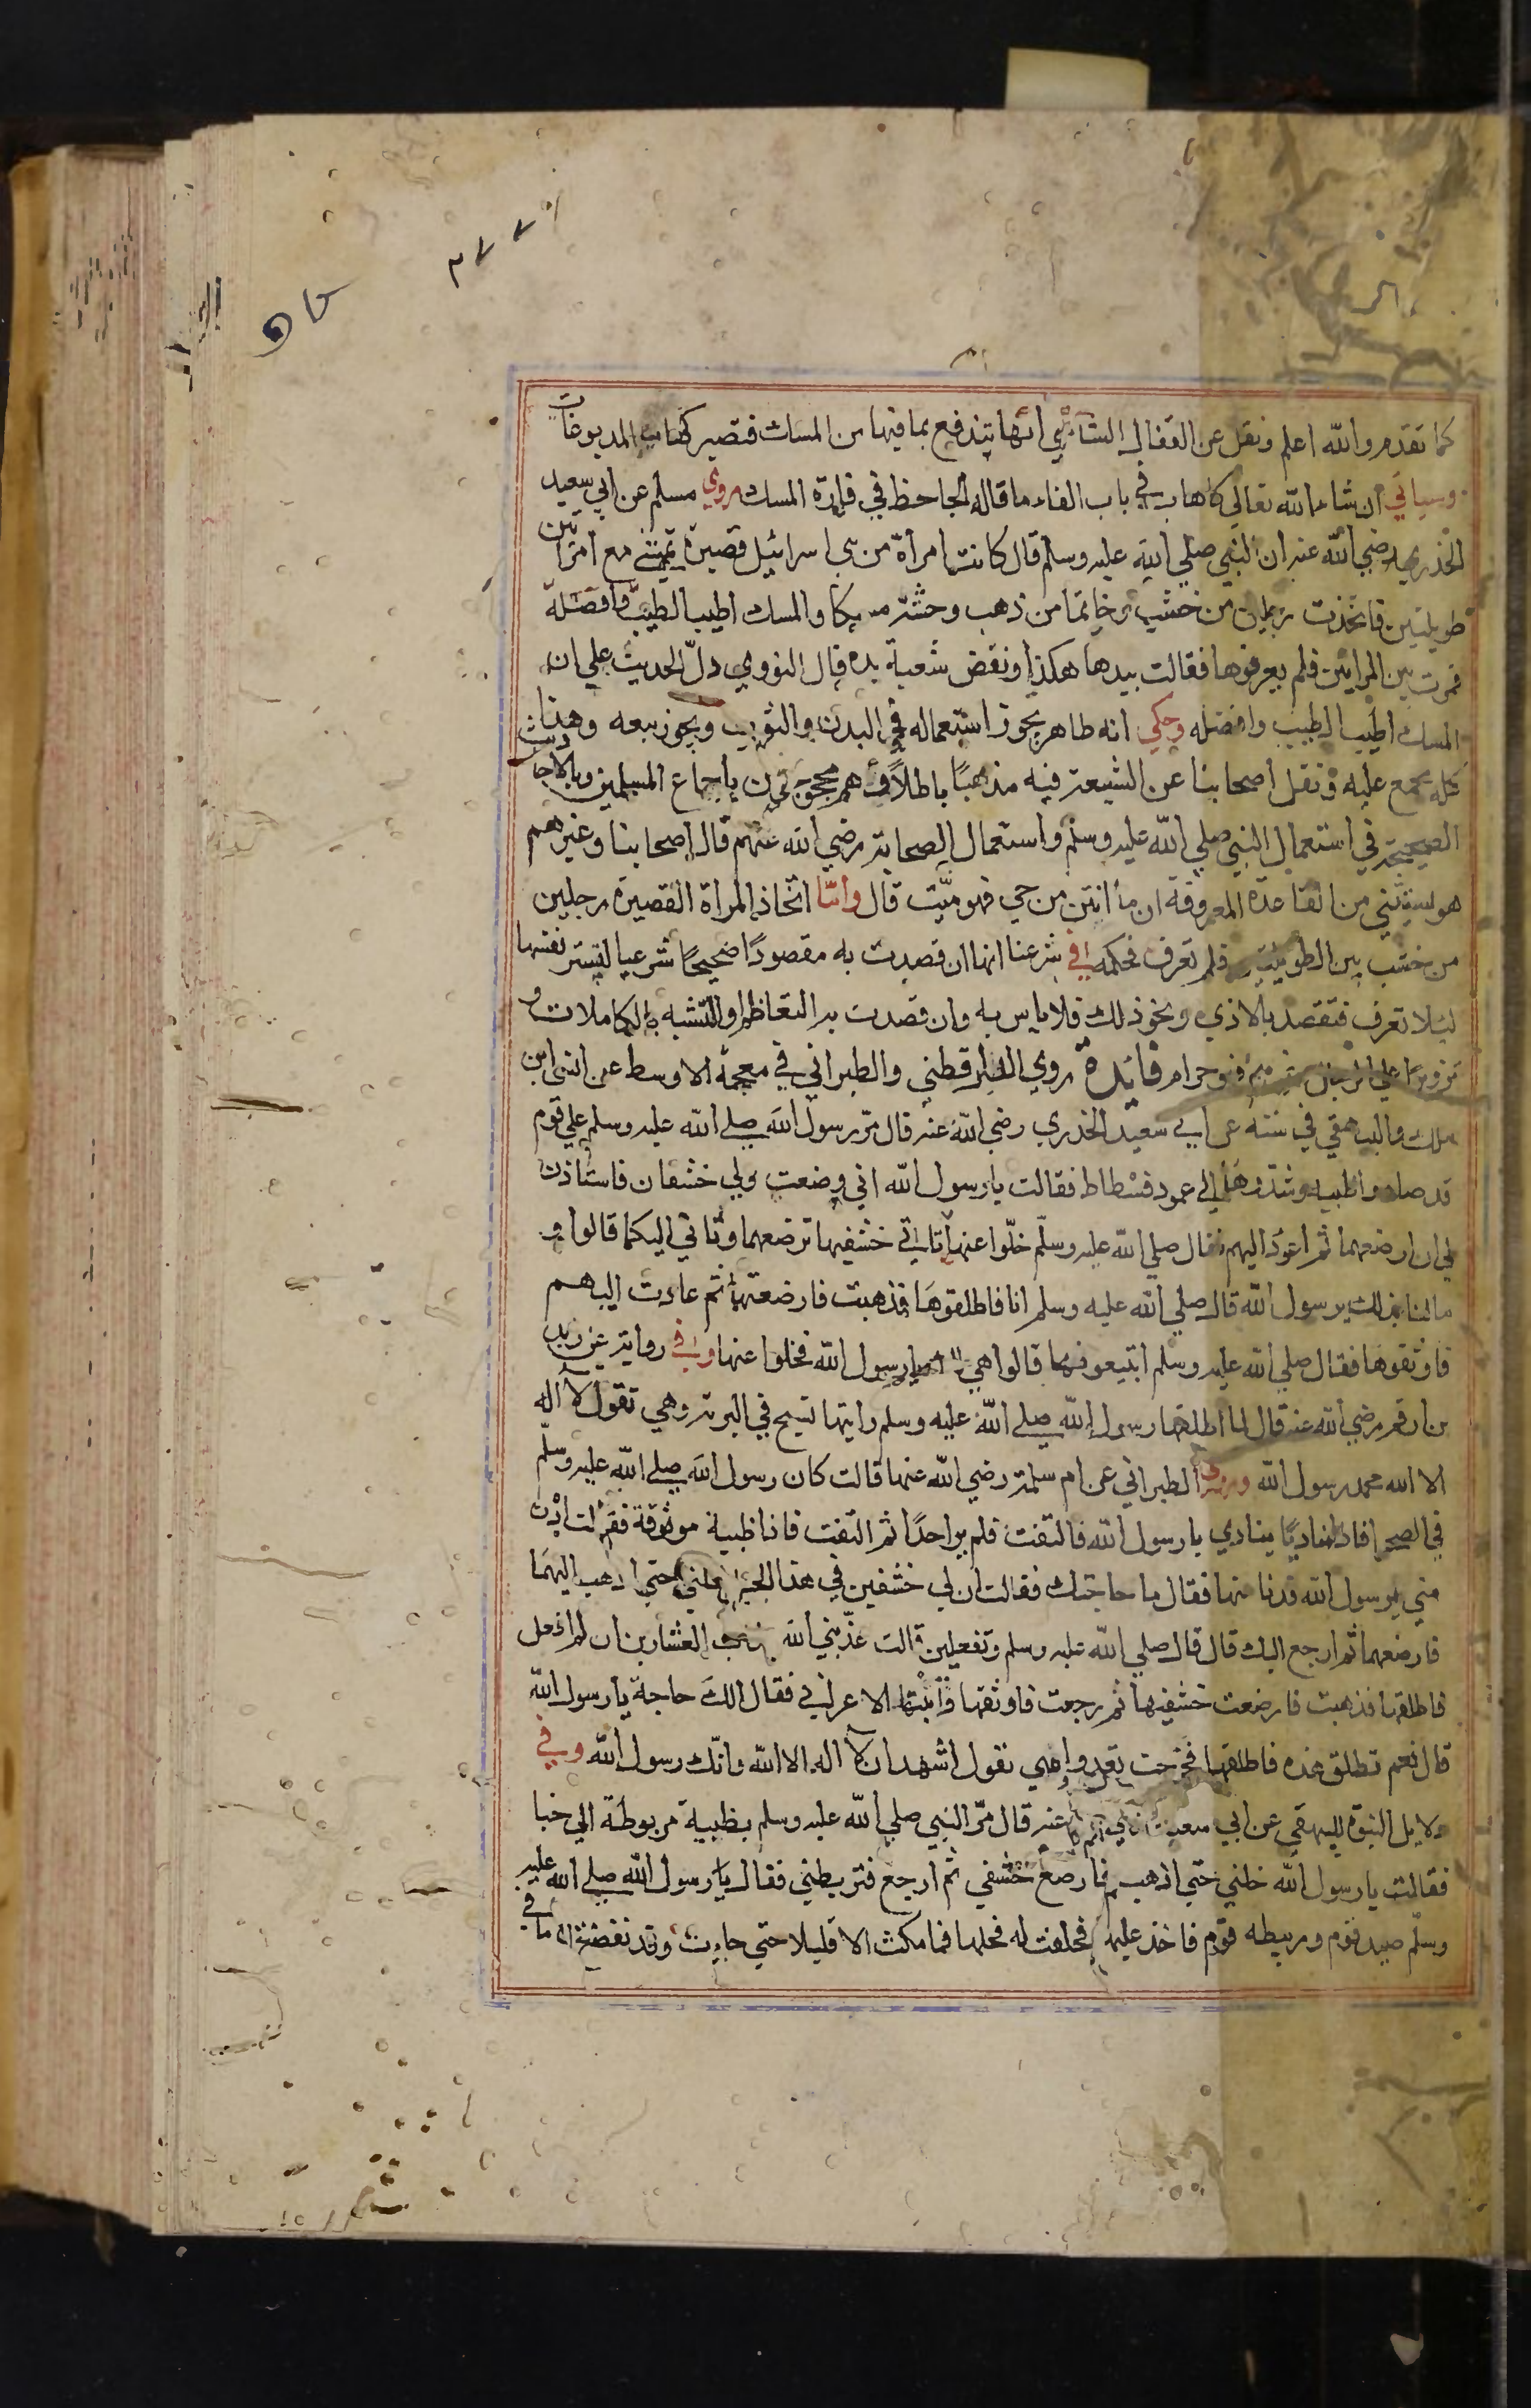 ٢٧٧
كما تقدم والله اعلم ونقل عن القفال الشاشي انها تندفع بما فيها من المسك فتصير كغيرها من المدبوغات
وسياتي ان شاء الله تعالي في باب الفاء ما قاله الجاحظ في فارة المسك روي مسلم عن ابي سعيد
الخدري رضي الله عنه ان النبي صلي الله عليه وسلم قال كانت امراة من بني اسرائيل قصيرة تمشي مع امراتين
طويلتين فاتخذت رجلين من خشب وخاتما من ذهب وحشته مسكا والمسك اطيب الطيب وافضله
فمرت بين المراتين فلم يعرفوها فقالت بيدها هكذا ونفض شعبة يده قال النووي دل الحديث علي ان
المسك اطيب الطيب وافضله وحكي انه طاهر يجوز استعماله في البدن والثوب ويجوز بيعه وهذا
كله مجمع عليه ونقل اصحابنا عن الشيعة فيه مذهبا باطلا وهم محجوجون باجماع المسلمين وبالاحاديث
الصحيحة في استعمال النبي صلي الله عليه وسلم واستعمال الصحابة رضي الله عنهم قال اصحابنا وغيرهم
هو مستثني من القاعدة المعروفة ان ما ابين من حي فهو ميت قال واما اتخاذ المراة القصيرة رجلين
من خشب بين الطويلتين فلم تعرف فحكمه في شرعنا انها ان قصدت به مقصودا صحيحا شرعيا لتستر نفسها
ليلا تعرف فتقصد بالاذي ونحو ذلك فلا باس به وان قصدت به التعاظم او التشبه بالكاملات و
تزويرا علي الرجال فهو حرام فائدة روي الدارقطني والطبراني في معجمه الاوسط عن انس ابن
ملك والبيهقي في سننه عن ابي سعيد الخدري رضي الله عنه قال مر رسول الله صلي الله عليه وسلم علي قوم
قد صادوا ظبية وشدوها الي عمود فسطاط فقالت يا رسول الله اني وضعت ولي خشفان فاستاذن
لي ان ارضعهما ثم اعود اليهم فقال صلي الله عليه وسلم خلوا عنها تاتي خشفيها ترضعهما وتاتي اليكم قالوا و
مالنا بذلك يرسول الله قال صلي الله عليه وسلم انا فاطلقوها فذهبت فارضعتهما ثم عادت اليهم
فاوثقوها فقال صلي الله عليه وسلم ابتيعوفيها قالوا هي لك يا رسول الله فخلوا عنها وفي رواية عن زيد
بن ارقم رضي الله عنه قال لما اطلقها رسول الله صلي الله عليه وسلم رايتها تسبح في البرية وهي تقول لا اله
الا الله محمد رسول الله وروي الطبراني عن ام سلمة رضي الله عنها قالت كان رسول الله صلي الله عليه وسلم
في الصحرا فاذا مناديا ينادي يا رسول الله فالتفت فلم ير احدا ثم التفت فاذا ظبية موثوقة فقالت ادن
مني يرسول الله فدنا منها فقال ما حاجتك فقالت ان لي خشفين في هذا الجبل فحلني حتي اذهب اليهما
فارضعهما ثم ارجع اليك قال قال صلي الله عليه وسلم وتفعلين قالت عذبني الله عذاب العشارين ان لم افعل
فاطلقها فذهبت فارضعت خشفيها ثم رجعت فاوثقها فانتبه الاعرابي فقال الك حاجة يا رسول الله
قال نعم تطلق هذه فاطلقها فخرجت تعدو وهي تقول اشهد ان لا اله الا الله وانك رسول الله وفي
دلايل النبوة للبيهقي عن ابي سعيد رضي الله عنه قال مر النبي صلي الله عليه وسلم بظبية مربوطة الي خبا
فقالت يا رسول الله خلني حتي اذهب فارضع خشفي ثم ارجع فتربطني فقال يا رسول الله صلي الله عليه
وسلم صيد قوم وربيطه قوم فاخذ عليها فحلفت له فحلها فما مكث الا قليلا حتي جاءت وقد نفضت ما في